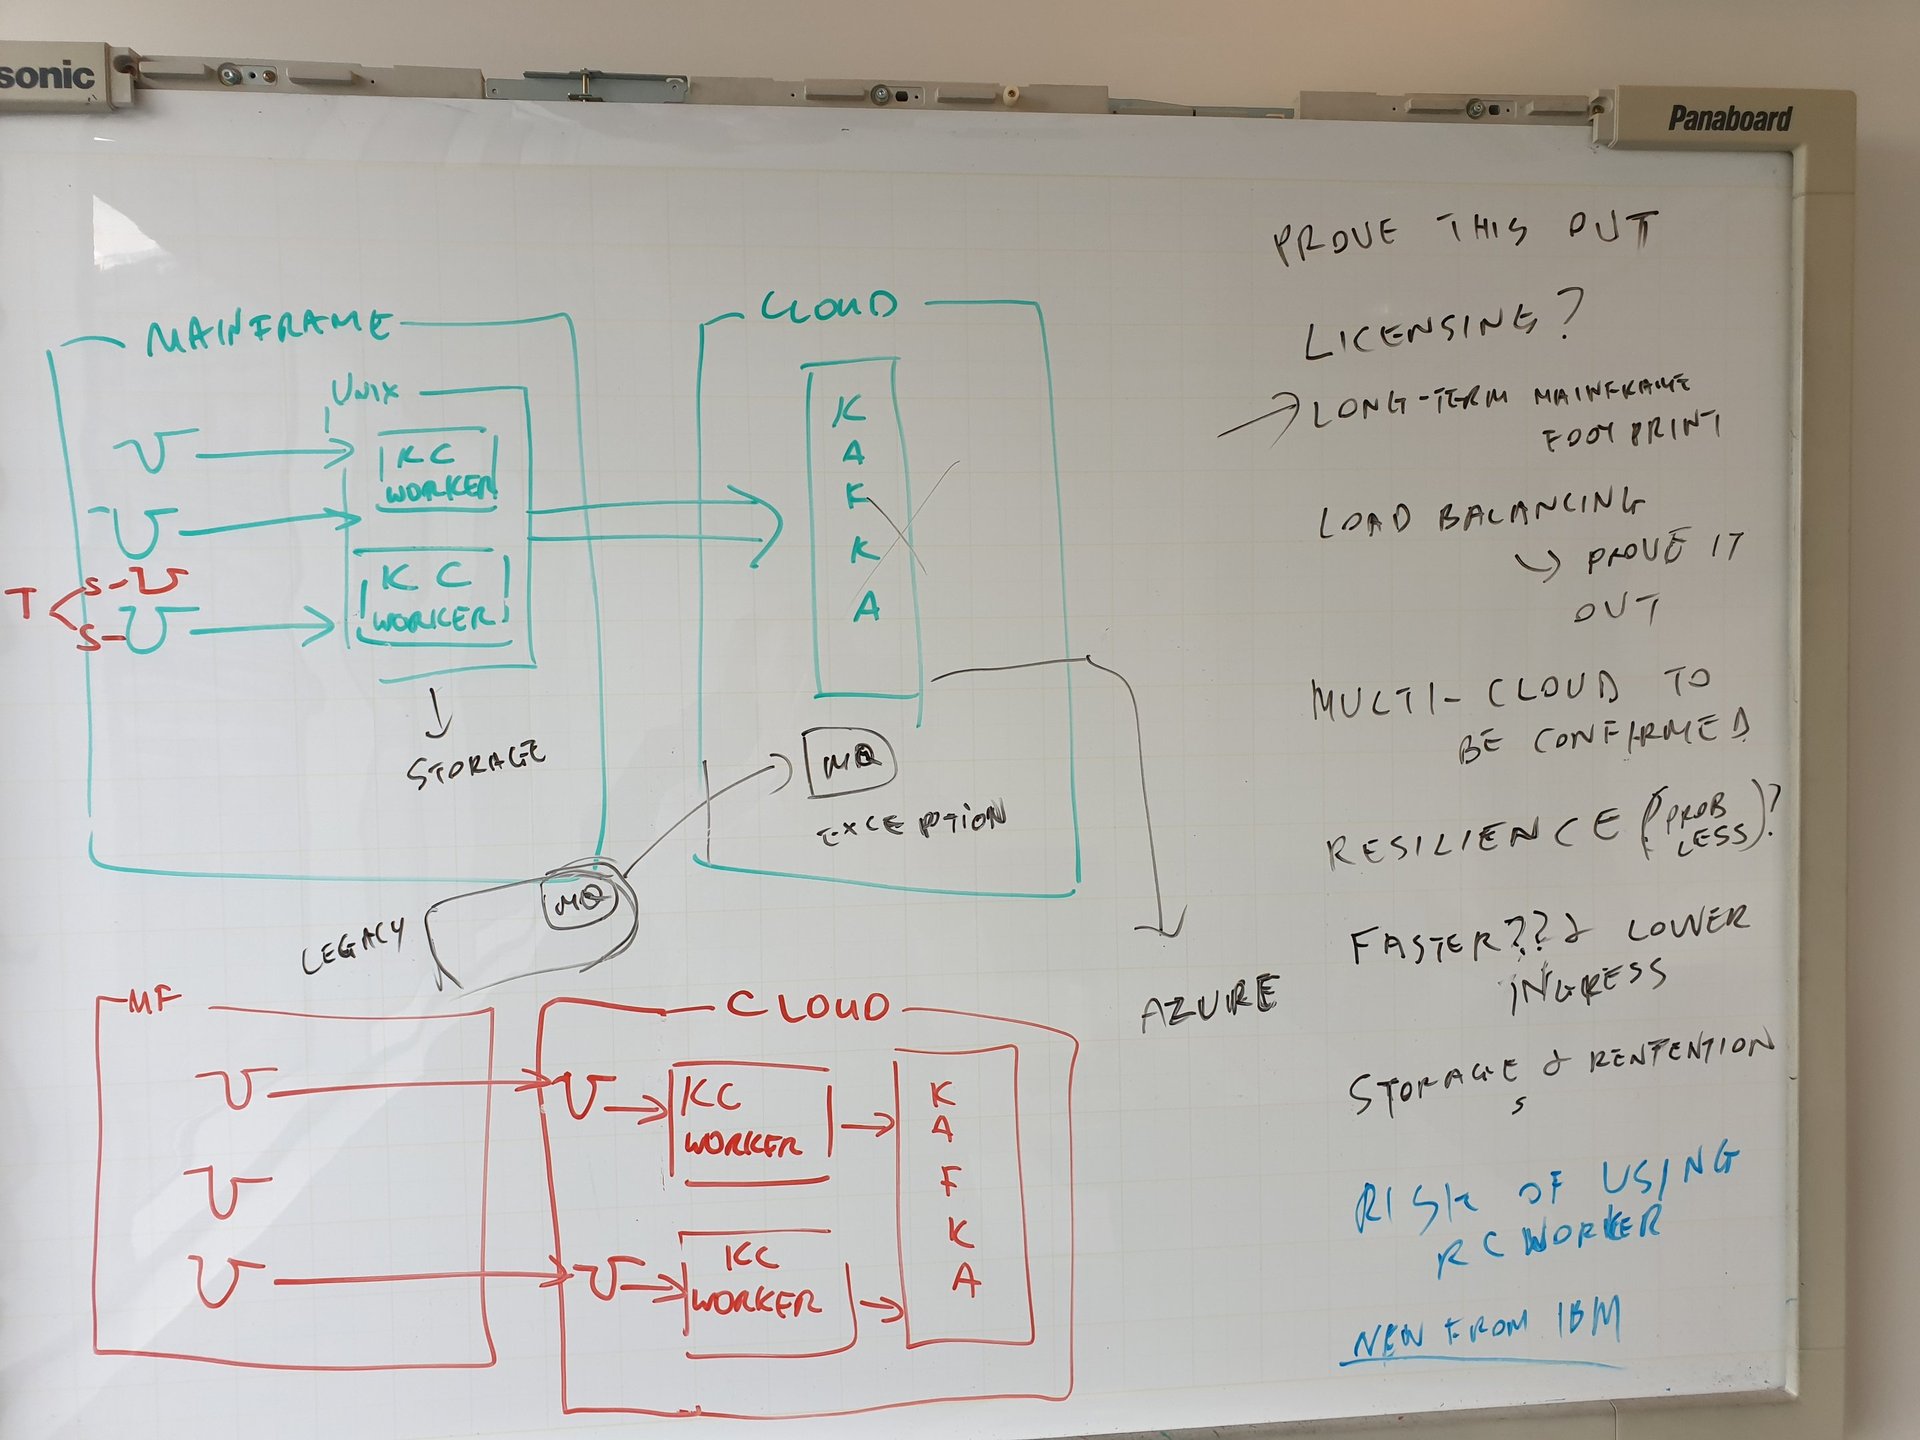 sonic
Panaboard
MAINFRAME
UNIX
KC
WORKER
K C
WORKER
T
S
S
STORAGE
CLOUD
K
A
K
K
A
MQ
EXCEPTION
LEGACY
MQ
AZURE
MF
CLOUD
KC
WORKER
KC
WORKER
K
A
F
K
A
PROVE THIS OUT
LICENSING?
LONG-TERM MAINFRAME
FOOTPRINT
LOAD BALANCING
PROVE IT
OUT
MULTI-CLOUD TO
BE CONFIRMED
RESILIENCE (PROB
LESS)?
FASTER??& LOWER
INGRESS
STORAGE & RENTENTION
S
RISK OF USING
KC WORKER
NEW FROM IBM